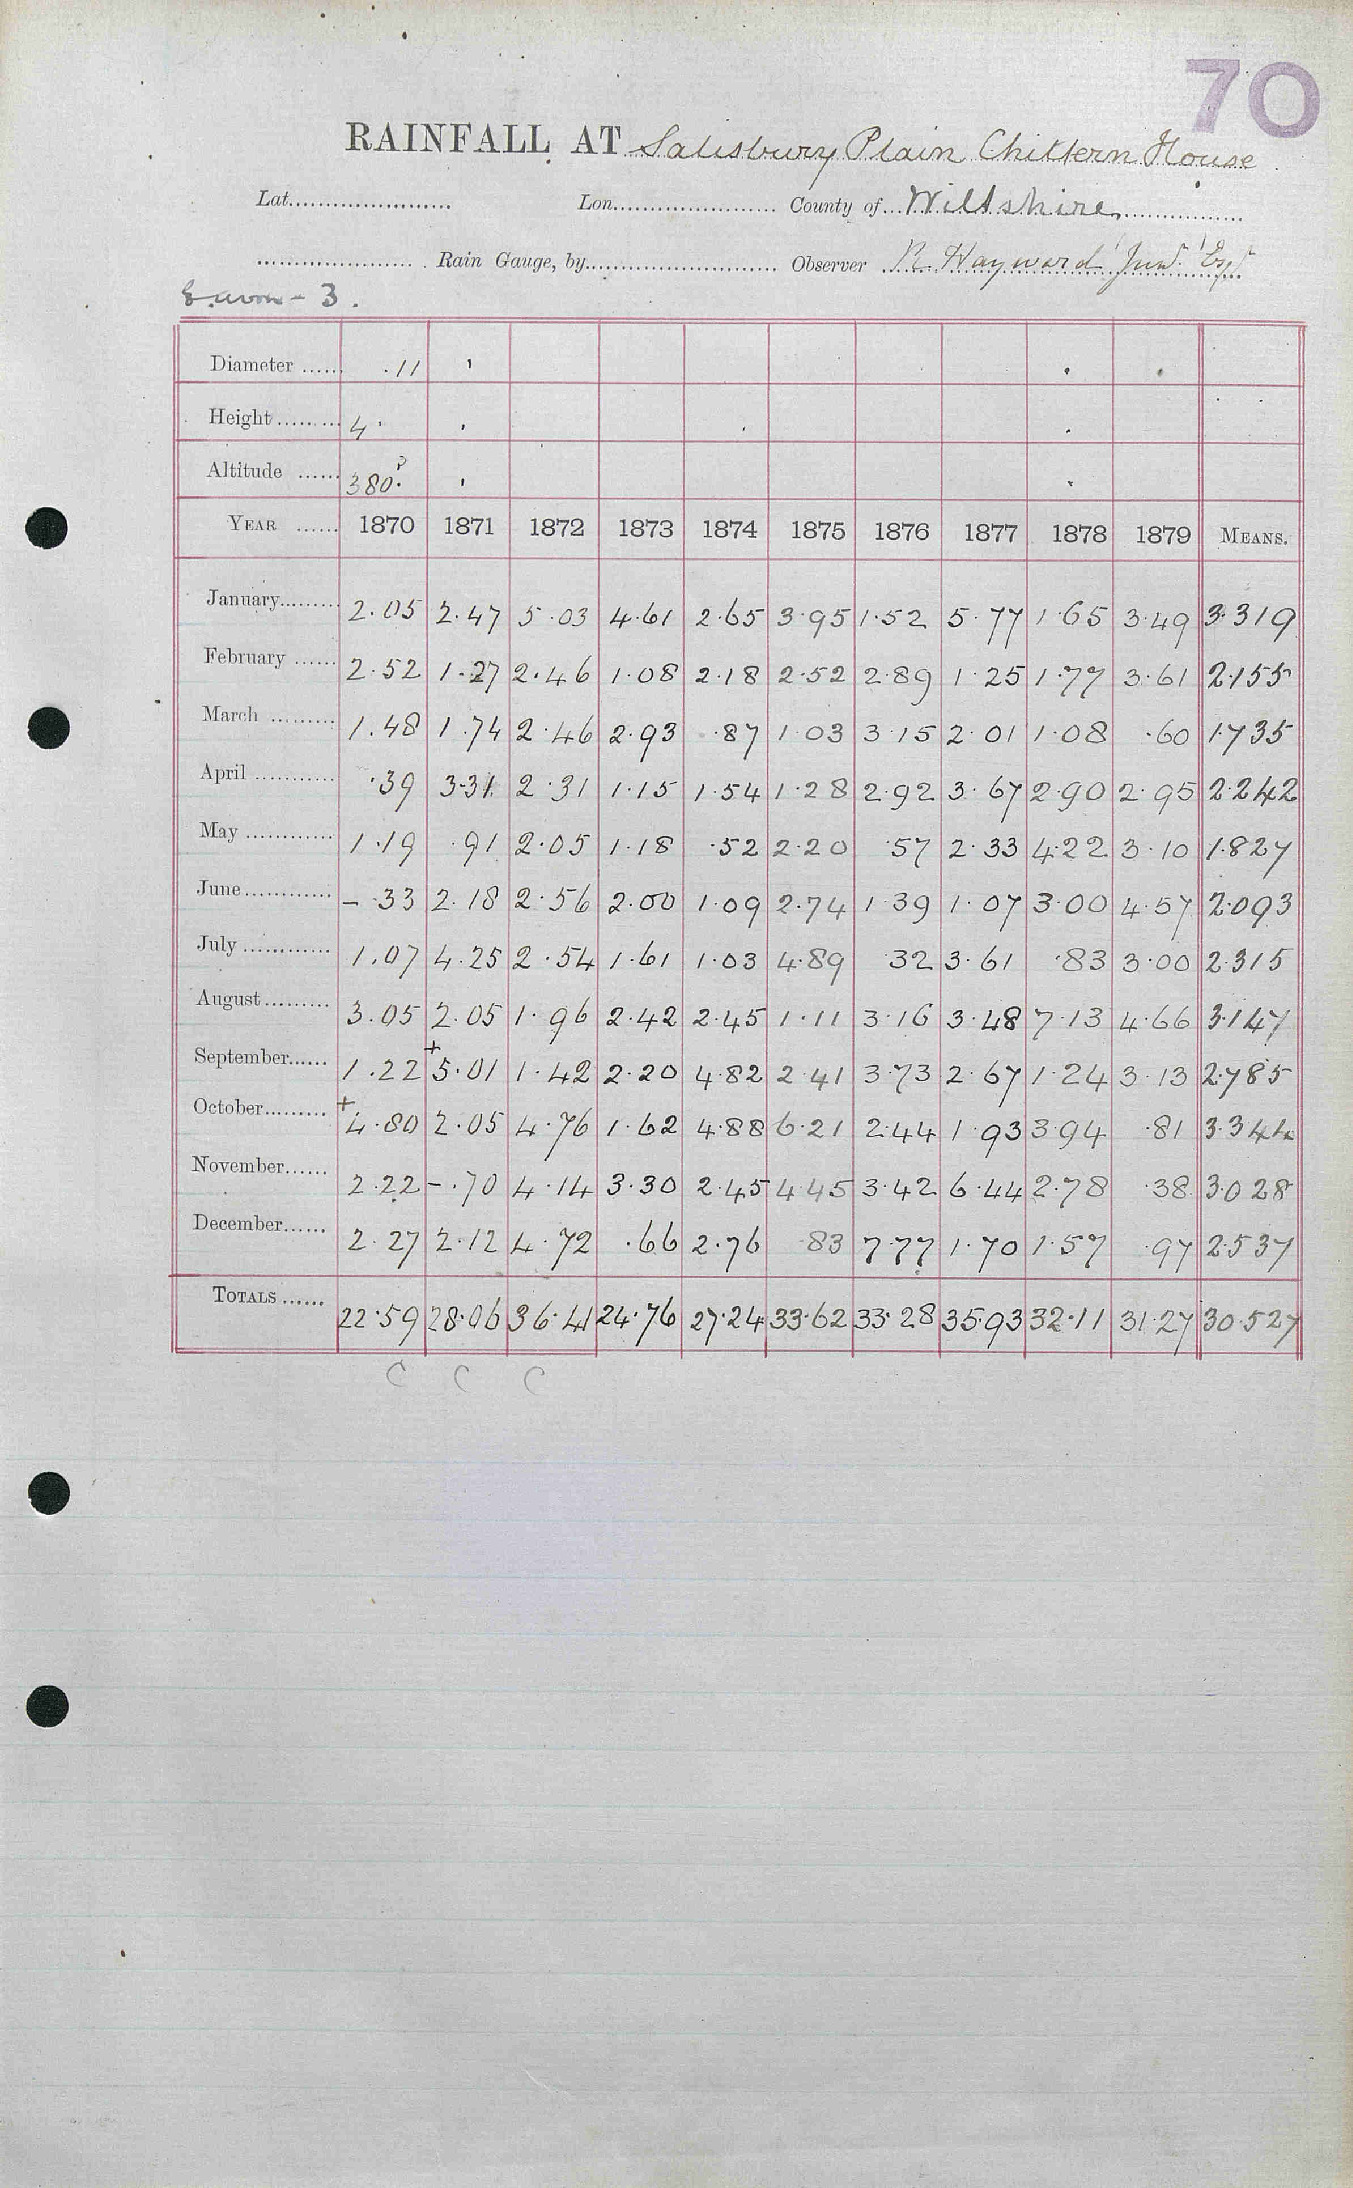 70
RAINFALL AT Salisbury Plain Chittern House
Lat. Lon. County of Wiltshire
Rain Gauge, by Observer R Hayward Junr Esqr
3.
Diameter .11
Height 4
Altitude 380 ?
YEAR 1870 1871 1872 1873 1874 1875 1876 1877 1878 1879 MEANS.
January 2.05 2.47 5.03 4.61 2.65 3.95 1.52 5.77 1.65 3.49 3.319
February 2.52 1.27 2.46 1.08 2.18 2.52 2.89 1.25 1.77 3.61 2.155
March 1.48 1.74 2.46 2.93 .87 1.03 3.15 2.01 1.08 .60 1.735
April .39 3.31 2.31 1.15 1.54 1.28 2.92 3.67 2.90 2.95 2.242
May 1.19 .91 2.05 1.18 .52 2.20 .57 2.33 4.22 3.10 1.827
June - .33 2.18 2.56 2.00 1.09 2.74 1.39 1.07 3.00 4.57 2.093
July 1.07 4.25 2.54 1.61 1.03 4.89 .32 3.61 .83 3.00 2.315
August 3.05 2.05 1.96 2.42 2.45 1.11 3.16 3.48 7.13 4.66 3.147
September 1.22 +5.01 1.42 2.20 4.82 2.41 3.73 2.67 1.24 3.13 2.785
October +4.80 2.05 4.76 1.62 4.88 6.21 2.44 1.93 3.94 .81 3.344
November 2.22 - .70 4.14 3.30 2.45 4.45 3.42 6.44 2.78 .38 3.028
December 2.27 2.12 4.72 .66 2.76 .83 7.77 1.70 1.57 .97 2.537
TOTALS 22.59 28.06 36.41 24.76 27.24 33.62 33.28 35.93 32.11 31.27 30.527
C C C